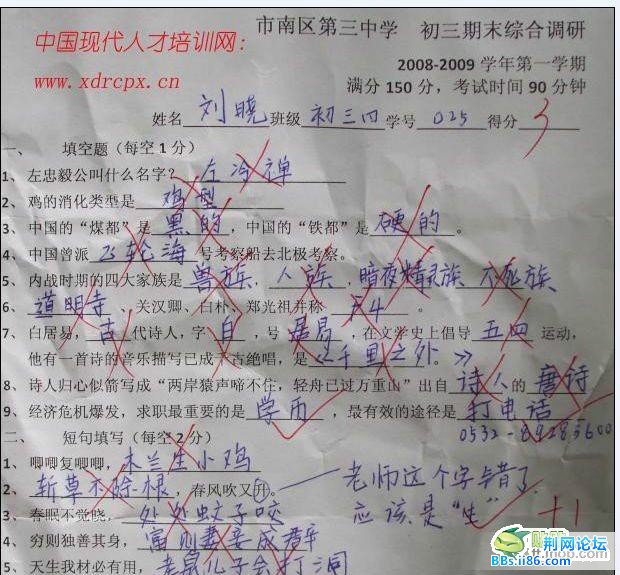 市南区第三中学 初三期末综合调研
中国现代人才培训网：
www.xdrcpx.cn
2008-2009 学年第一学期
满分 150 分，考试时间 90 分钟
姓名 刘晓 班级 初三四 学号 025 得分 3
一、 填空题（每空 1 分）
1、左忠毅公叫什么名字？ 左冷禅
2、鸡的消化类型是 鸡型
3、中国的“煤都”是 黑的 ，中国的“铁都”是 硬的 。
4、中国曾派 飞轮海 号考察船去北极考察。
5、内战时期的四大家族是 兽族 ， 人族 ， 暗夜精灵族 不死族
6、 道明寺 、关汉卿、白朴、郑光祖并称 F4 。
7、白居易， 古 代诗人，字 白 ，号 居易 ，在文学史上倡导 五四 运动，
他有一首诗的音乐描写已成千古绝唱，是 《千里之外。》
8、诗人归心似箭写成“两岸猿声啼不住，轻舟已过万重山”出自 诗人 的 唐诗
9、经济危机爆发，求职最重要的是 学历 ，最有效的途径是 打电话
0532-89285600
二、 短句填写（每空 2 分）
1、唧唧复唧唧， 木兰生小鸡
2、 斩草不除根 ，春风吹又升。 老师这个字错了
应该是“生” +1
3、春眠不觉晓， 处处蚊子咬
4、穷则独善其身， 富则妻妾成群
5、天生我材必有用， 老鼠儿子会打洞
荆网论坛
BBS.ii86.com